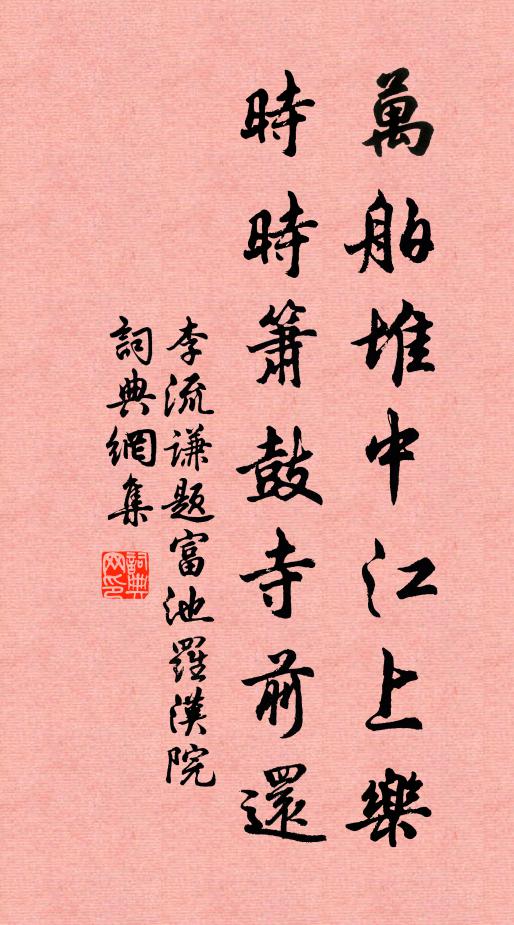 萬舶堆中江上樂
時時簫鼓寺前還
李流謙題富池羅漢院
詞典網集
詞典網印